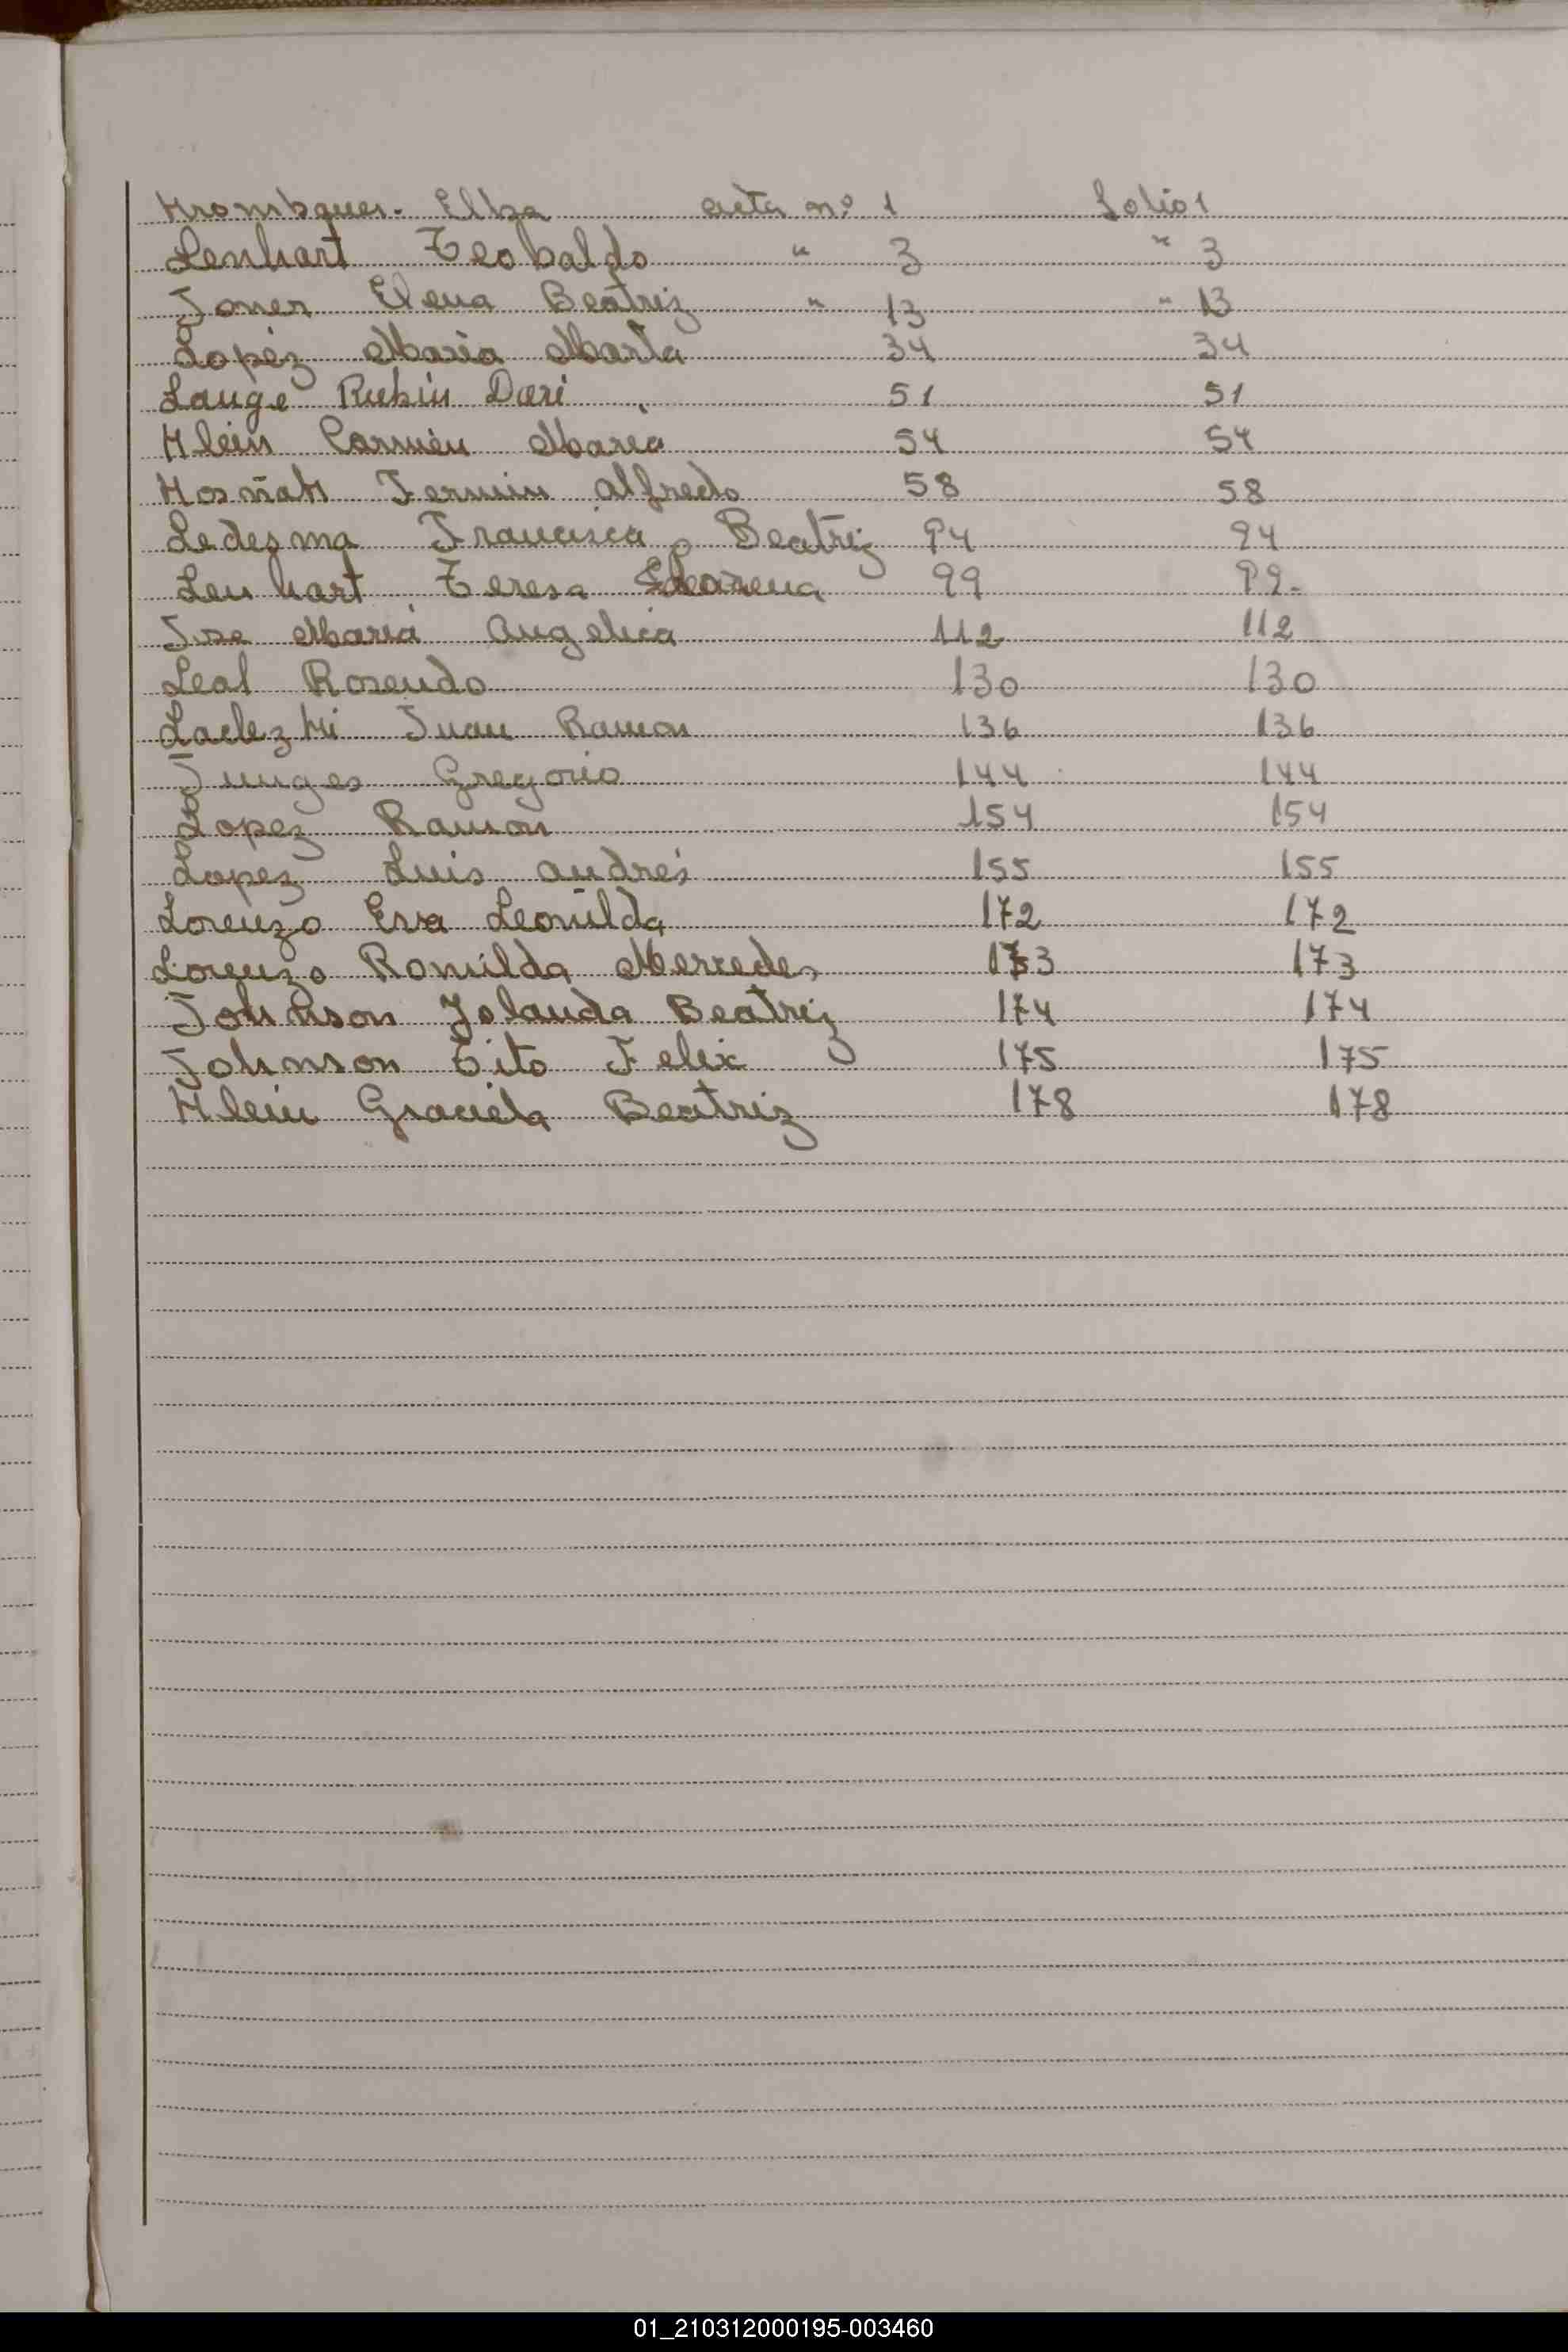 Krombauer. Elba acta nº 1 folio 1
Lenhart Teobaldo " 3 " 3
Joner Elena Beatriz " 13 " 13
Lopez Maria Marta 34 34
Lange Rubin Dari 51 51
Klein Carmen Maria 54 54
Kosñak Fermin Alfredo 58 58
Ledesma Francisca Beatriz 94 94
Lenhart Teresa 99 99.
Jse Maria Angelica 112 112
Leal Rosendo 130 130
Laclezki Juan Ramon 136 136
Junges Gregorio 144 144
Lopez Ramon 154 154
Lopez Luis Andrés 155 155
Lorenzo Eva Leonilda 172 172
Lorenzo Romilda Mercedes 173 173
Johnson Jolanda Beatriz 174 174
Johnson Tito Felix 175 175
Klein Graciela Beatriz 178 178
01_210312000195-003460